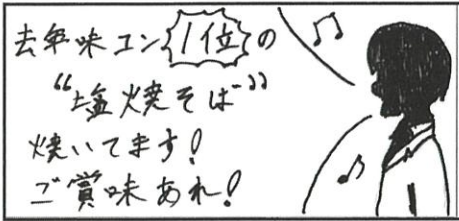 去年味コン1位の
“塩焼そば”
焼いてます!
ご賞味あれ!